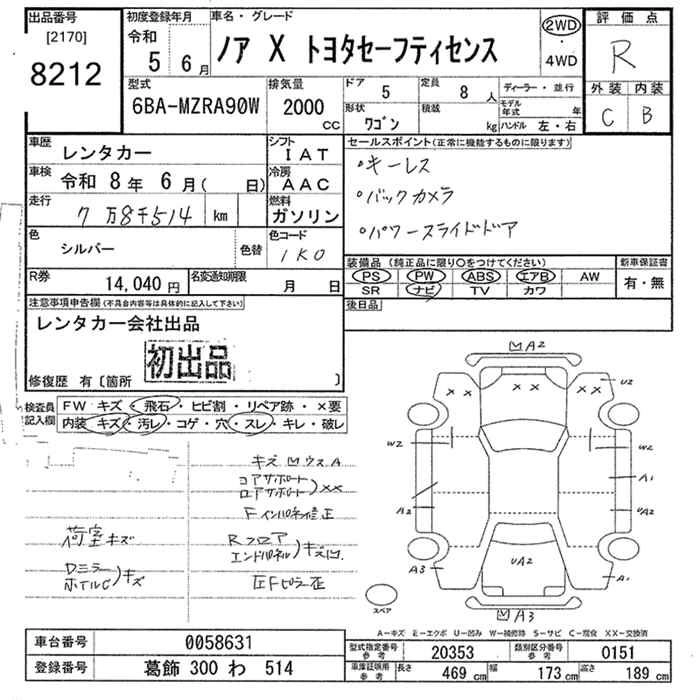 出品番号
[2170]
8212
初度登録年月
令和
5 6月
車名・グレード
ノア X トヨタセーフティセンス
2WD
・
4WD
評価点
R
外装 内装
C B
型式
6BA-MZRA90W
排気量
2000
CC
ドア 5
定員 8 人
ディーラー・並行
形状 ワゴン
積載 kg
モデル年式 年
ハンドル 左・右
車歴 レンタカー
シフト IAT
車検 令和 8年 6月( 日)
冷房 AAC
走行 7万8千514 km
燃料 ガソリン
色 シルバー 色替
色コード 1K0
R券 14,040円
名変通知期限 月 日
セールスポイント(正常に機能するものに限ります)
・キーレス
・バックカメラ
・パワースライドドア
装備品(純正品に限り○をつけてください)
新車保証書
PS PW ABS エアB AW
SR ナビ TV カワ
有・無
後日品
注意事項申告欄(不具合内容等は具体的に記入して下さい)
レンタカー会社出品
初出品
修復歴 有〔箇所 〕
検査員記入欄
FW キズ・飛石・ヒビ割・リペア跡・×要
内装 キズ・汚レ・コゲ・穴・スレ・キレ・破レ
コアサポート
ロアサポート)××
Fインパネ修正
荷室キズ
Rフロア
エンドパネル)キズ凹
Dミラー
ホイルC)キズ
A2
×× ×× ××
U2
W2 W2
A1
A2 UA2
UA2
A3 A1
A3
スペア
A-キズ E-エクボ U-凹み W-補修跡 S-サビ C-腐食 XX-交換済
車台番号 0058631
登録番号 葛飾 300 わ 514
型式指定番号 参考 20353
類別区分番号 参考 0151
車庫証明用 参考 長さ 469 cm 幅 173 cm 高さ 189 cm